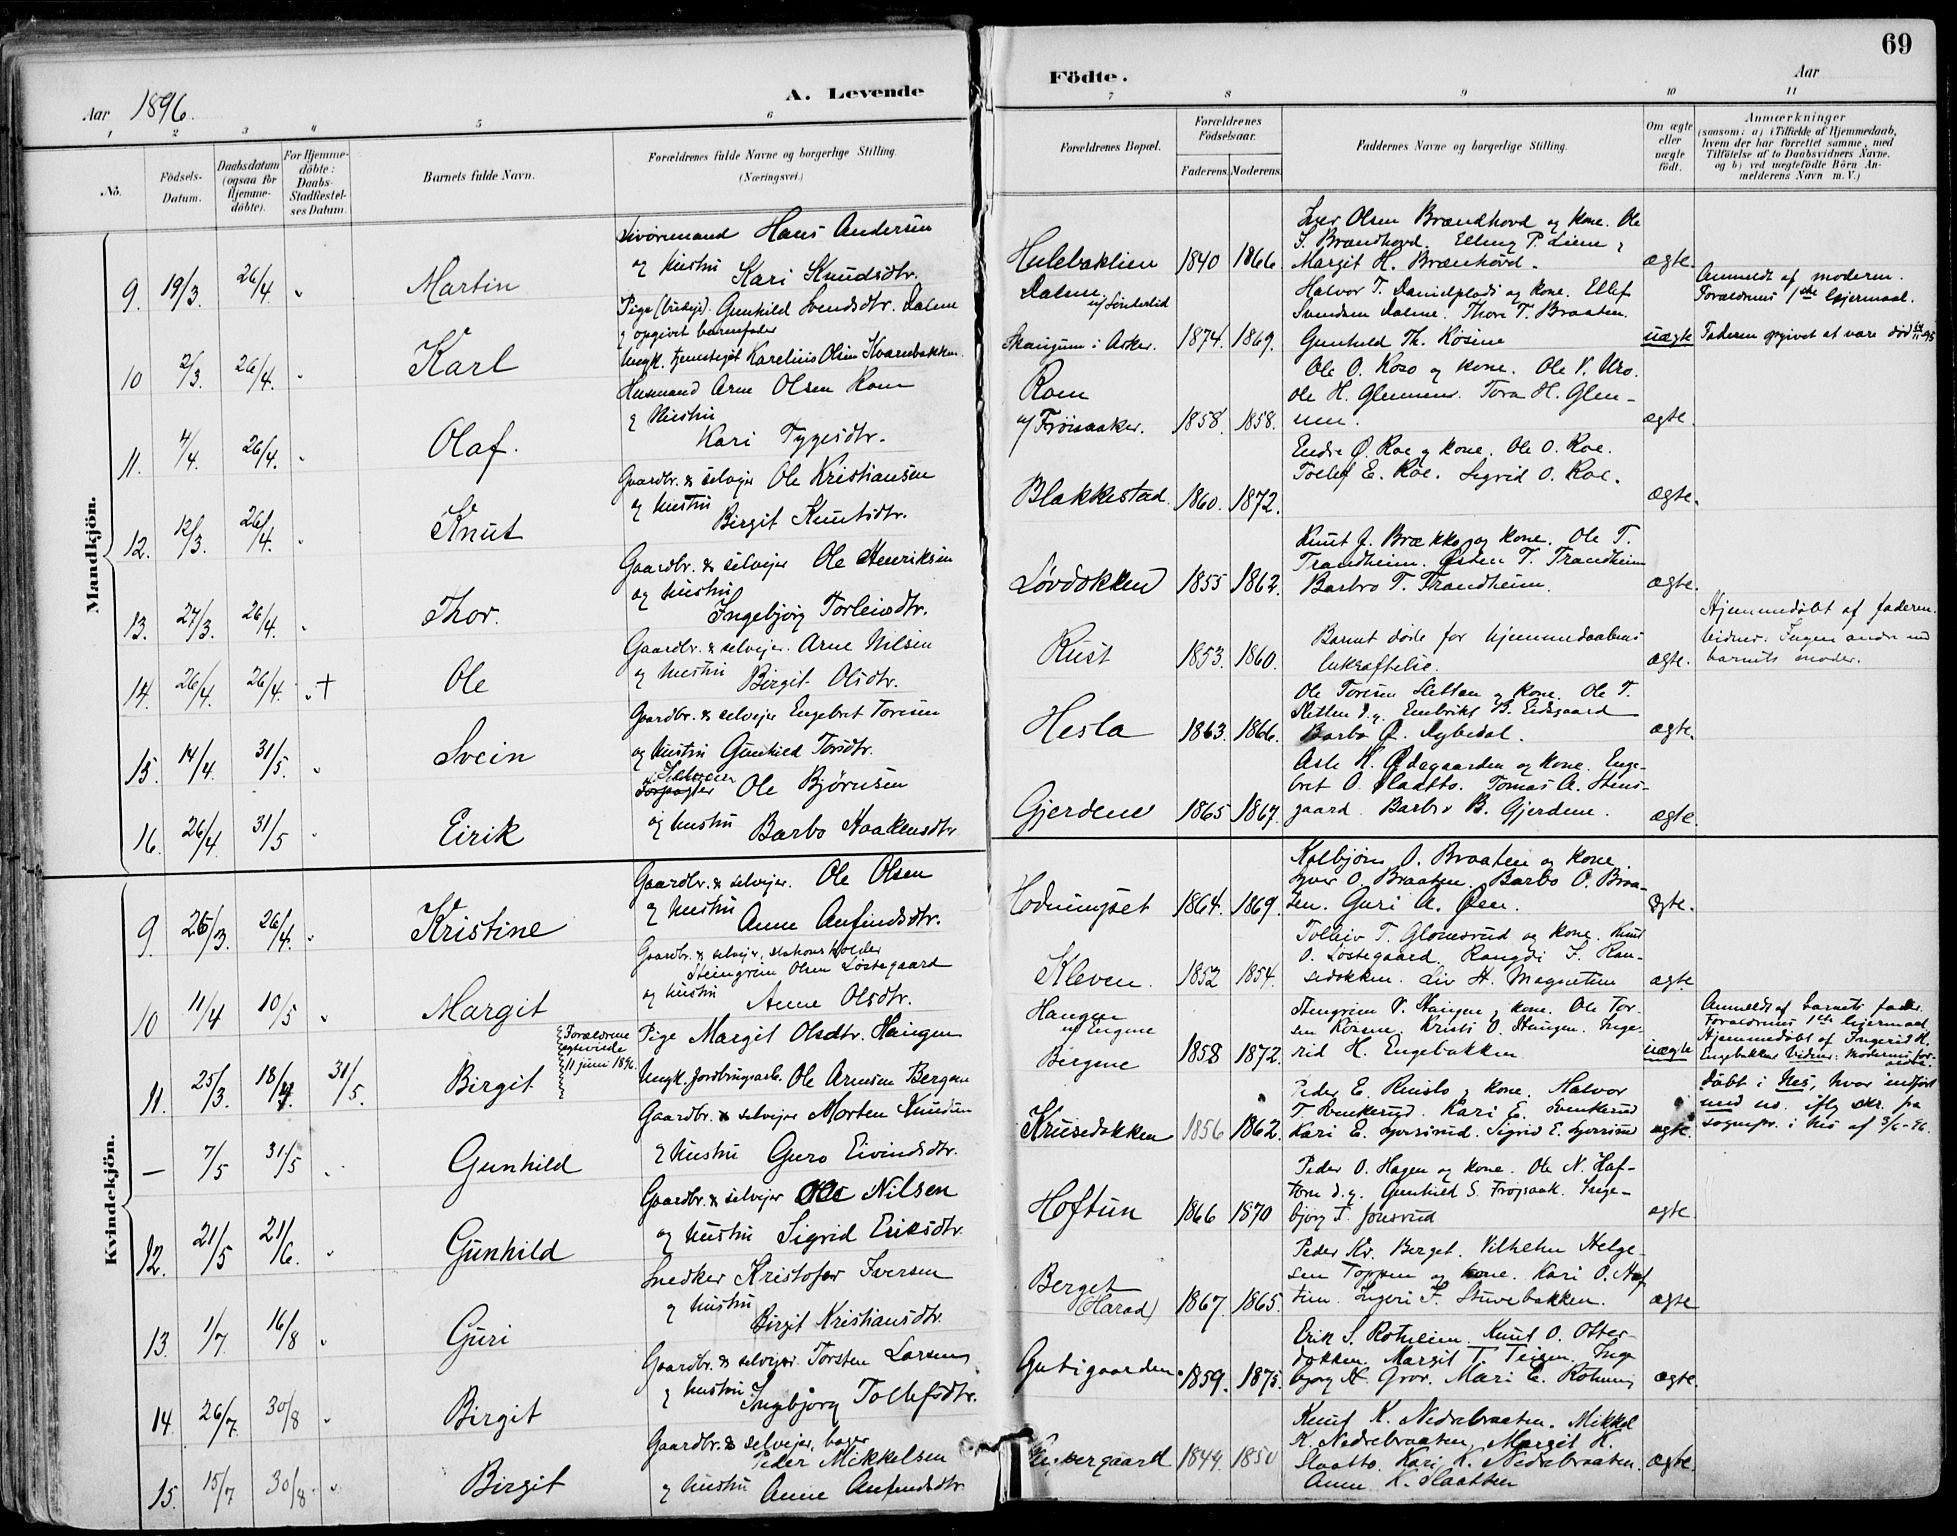 69
Aar 1896.
A. Levende
Födte.
Aar
1 2 3 4 5 6 7 8 9 10 11
No.
Födsels-Datum.
Daabsdatum (ogsaa for Hjemme-döbte).
For Hjemme-döbte: Daabs-Stadfæstel-ses Datum.
Barnets fulde Navn.
Forældrenes fulde Navne og borgerlige Stilling. (Næringsvei.)
Forældrenes Bopæl.
Forældrenes Födselsaar.
Faderens. Moderens.
Faddernes Navne og borgerlige Stilling.
Om ægte eller uægte födt.
Anmærkninger
(saasom: a) i Tilfælde af Hjemmedaab, hvem der har forrettet samme, med Tilföielse af to Daabsvidners Navne, og b) ved uægtefödte Börn An-melderens Navn m. V.)
Mandkjön.
9. 19/3. 26/4. Martin
Hans Andersen
og hustru Kari Knudsdtr.
Hulebaklien 1840 1866.
Iver Olsen Brændhovd og kone. Ole
S. Brændhovd. Elling P. Liem
Margit H. Brænhovd.
ægte.
10 2/3. 26/4. Karl
Pige Gunhild Svendsdtr. Dalene
opgivet barnefader
Ungk. tjenestegut Karelius Olsen Kvarnbakken.
Dalene
Skaugum i Asker. 1874. 1869.
Halvor T. Danielplads og kone. Ellef
Svendsen Dalene. Thore T. Braaten.
Gunhild Th. Rösine
uægte
Anmeldt af moderen.
Forældrenes 1ste leiermaal.
Faderen opgivet at være død
11. 4/4. 26/4. Olaf.
Husmand Arne Olsen Rom
hustru
Kari Tygesdtr.
Rom
u/ Frøisaaker. 1858. 1858.
Ole O. Roso og kone. Ole V. Uro.
Ole H. Glemmen. Tora H. Glem-
men.
ægte.
12. 12/3. 26/4. Knut
Gaardbr. & selvejer Ole Kristiansen
og hustru Birgit Knutsdtr.
Blakkestad. 1860. 1872.
Endre Ø. Roe og kone. Ole O. Roe.
Tollef E. Roe. Sigrid O. Roe.
ægte.
13. 27/3. 26/4. Thor.
Gaardbr. & selvejer Ole Henriksen
og hustru
Ingebjörg Torleivsdtr.
Løvdokken 1855 1862.
Knut J. Brække og kone. Ole T.
Trandheim. Østen T. Trandheim
Barbro T. Trandheim.
ægte.
14. 26/4. 26/4. + Ole
Gaardbr. & selvejer. Arne Nilsen
og hustru Birgit Olsdtr.
Rust 1853. 1860.
Barnet døde før hjemmedaabens
bekræftelse.
ægte.
Hjemmedøbt af faderen.
Vidner: Ingen andre end
barnets moder.
15. 14/4. 31/5. Svein
Gaardbr. & selvejer Engebret Toresen
og hustru Gunhild Torsdtr.
Hesla 1863. 1866.
Ole Toresen Sletten og kone. Ole T.
Sletten d.y. Embrikt B. Eidsgaard
Barbo Ø. Nybedal.
ægte.
16. 26/4 31/5 Eirik
Selveier
Forpagter Ole Björnsen
og hustru Barbo Haakensdtr.
Gjerdene 1865 1867.
Asle K. Ødegaarden og kone. Enge-
bret O. Slaatto. Tomas A. Stens-
gaard. Barbro B. Gjerdene.
ægte.
Kvindekjön.
9. 25/3. 26/4. Kristine
Gaardbr. & selvejer. Ole Olsen
hustru Anne Anfindsdtr.
Hodnungset 1864. 1869.
Kolbjörn O. Braaten og kone.
Iver O. Braaten. Barbo O. Braa-
ten. Guri A. Øen.
ægte.
10 11/4 10/5 Margit
Gaardbr. & selvejer, stationsholder
Steingrim Olsen Løstegaard
og hustru Anne Olsdtr.
Kleven. 1852 1854.
Tolleiv T. Glonesrud og kone. Knud
O. Løstegaard. Rangdi S. Ran-
sedokken. Liv H. Magnetun
ægte
11. 25/3. 18/4. 31/5. Birgit
Forældrene
ægteviede
11 juni 1896.
Pige Margit Olsdtr. Haugen
Ungk. jordbrugsarb. Ole Arnesen Bergene
Haugen
u/ Engene
Bergene 1858 1872.
Stengrim P. Haugen og kone. Ole Tor-
sen Rosene. Kristi O. Haugen. Inge-
rid H. Engebakken
uægte
Anmeldt af barnets fader.
Forældrenes 1ste leiermaal
Hjemmedøbt af Ingerid H.
Engebakken Vidner: Moderens for-
ældre.
— 7/5 31/5 Gunhild
Gaardbr. & selvejer Morten Knudsen
hustru Guro Eivindsdtr.
Krusedokken 1856 1862.
Peder E. Rusto og kone. Halvor
T. Svenkerud. Kari E. Svenkerud
Kari E. Sjorsrud. Sigrid E. Sjorsrud
ægte.
Døbt i Nes, hvor indført
med no. iflg skr. fra
sognepr. i Nes af 3/6-96.
12. 21/5 21/6. Gunhild
Gaardbr. & selvejer Ole Nilsen
og hustru Sigrid Eriksdtr.
Hoftun 1866 1870
Peder O. Hagen og kone. Ole N. Hof-
tun d.y. Gunhild S. Frøisaak. Inge-
björg T. Jonsrud
ægte
13. 1/7. 16/8 Guri
Snedker Kristofer Iversen
hustru
Birgit Kristiansdtr.
Berget
(Harad) 1867. 1865.
Peder Kr. Berget. Vilhelm Helge-
sen Toppen og kone. Kari O. Hof
tun. Ingeri F. Stuvebakken.
ægte
14. 26/7. 30/8 Birgit
Gaardbr. & selvejer. Torsten Larsen
hustru Ingebjörg Tollefsdtr.
Gutigaarden 1859. 1875.
Erik S. Rotneim. Knut O. Otter-
dokken. Margit T. Teigen. Inge
bjorg H. Grov. Mari E. Rotneim
ægte.
15. 15/7 30/8. Birgit
Gaardbr. & selvejer, bager
Peder Mikkelsen
hustru Anne Anfindsdtr.
1849. 1850
Knut K. Nedrebraaten. Mikkel
K. Nedrebraaten. Margit K.
Slaatto. Kari K. Nedrebraaten.
Anne K. Slaatten
ægte.